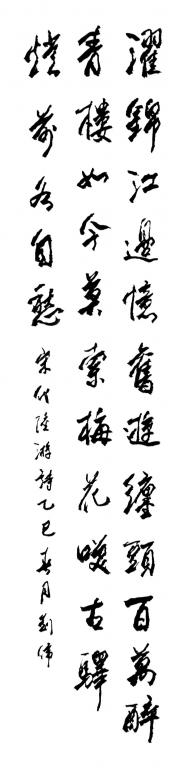 濯錦江邊憶舊遊纏頭百萬醉
青樓如今莫索梅花咲古驛
燈前各自愁宋代陸游詩乙巳春月劉偉